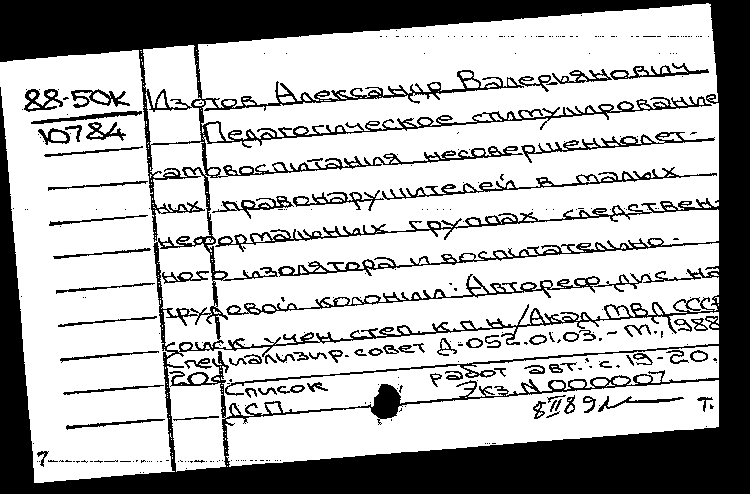 88-50к Изотов, Александр Валерьянович
10784 Педагогическое стимулирование
самовоспитания несовершеннолет-
них правонарушителей в малых
неформальных группах следствен-
ного изолятора и воспитательно-
трудовой колонии: Автореф. дис. на
соиск. учен. степ. к.п.н./Акад. МВД СССР
Специализир. совет Д-052.01.03.-М., 1988
20с.
Список работ авт.: с. 19-20.
ДСП. Экз. N 000007.
8 II 89 Т.
7